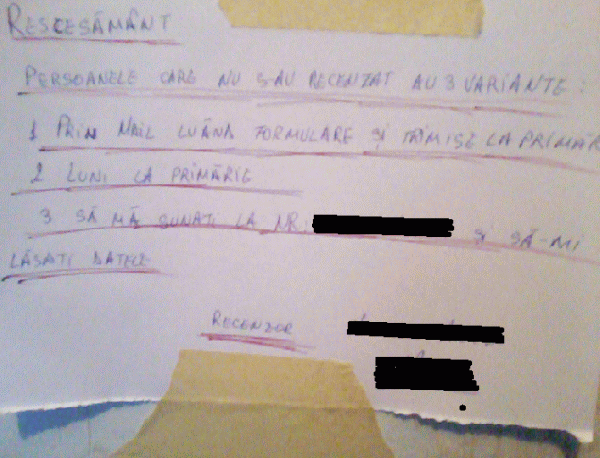 RESCESĂMÂNT
PERSOANELE CARE NU S-AU RECENZAT AU 3 VARIANTE:
1 PRIN MAIL LUÂND FORMULARE ȘI TRIMISE LA PRIMĂR
2 LUNI LA PRIMĂRIE
3 SĂ MĂ SUNATI LA NR: ȘI SĂ-MI
LĂSATI DATELE
RECENZOR